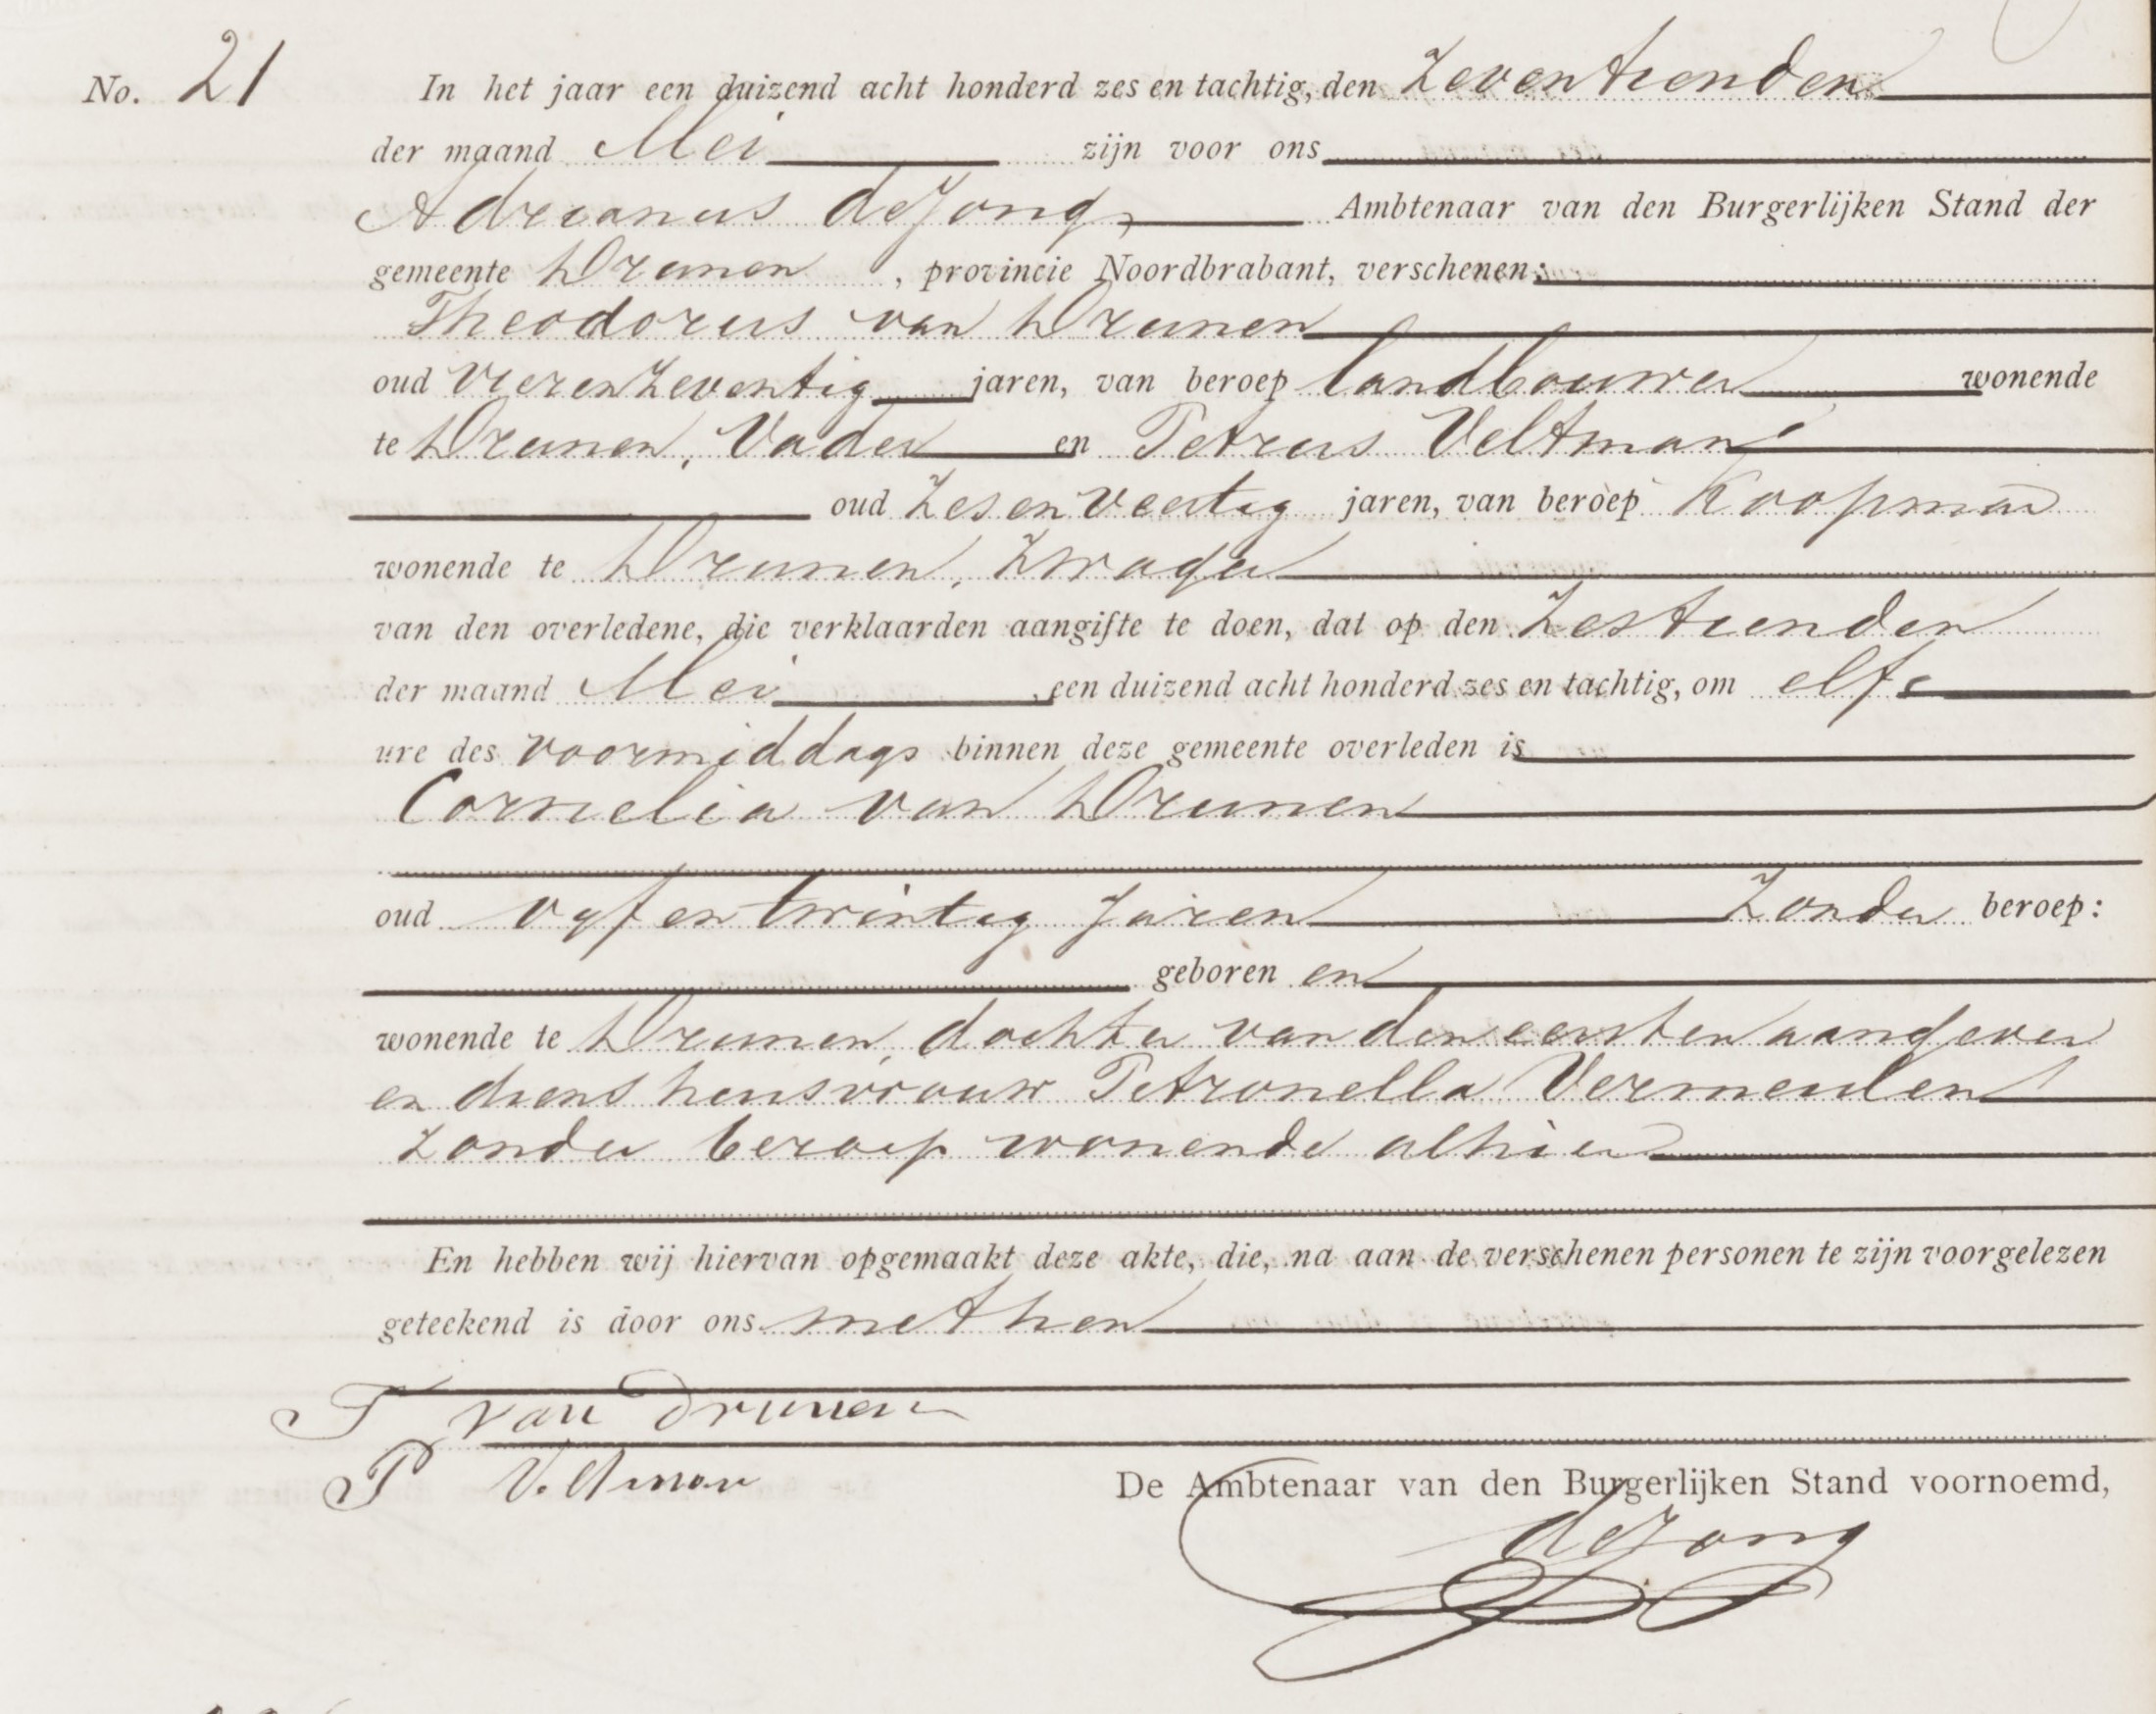 No. 21 In het jaar een duizend acht honderd zes en tachtig, den Zeventienden
der maand Mei zijn voor ons
Adrianus de Jong, Ambtenaar van den Burgerlijken Stand der
gemeente Drunen, provincie Noordbrabant, verschenen:
Theodorus van Drunen
oud Vierenzeventig jaren, van beroep landbouwer wonende
te Drunen, Vader en Petrus Veltman
oud Zesenveertig jaren, van beroep Koopman
wonende te Drunen, Zwager
van den overledene, die verklaarden aangifte te doen, dat op den Zestienden
der maand Mei, een duizend acht honderd zes en tachtig, om elf
ure des voormiddags binnen deze gemeente overleden is
Cornelia van Drunen
oud vyf en twintig Jaren Zonder beroep:
geboren en
wonende te Drunen, dochter van den eersten aangever
en diens huisvrouw Petronella Vermeulen
Zonder beroep wonende alhier
En hebben wij hiervan opgemaakt deze akte, die, na aan de verschenen personen te zijn voorgelezen
geteekend is door ons met hen
T van Drunen
P Veltman De Ambtenaar van den Burgerlijken Stand voornoemd,
de Jong